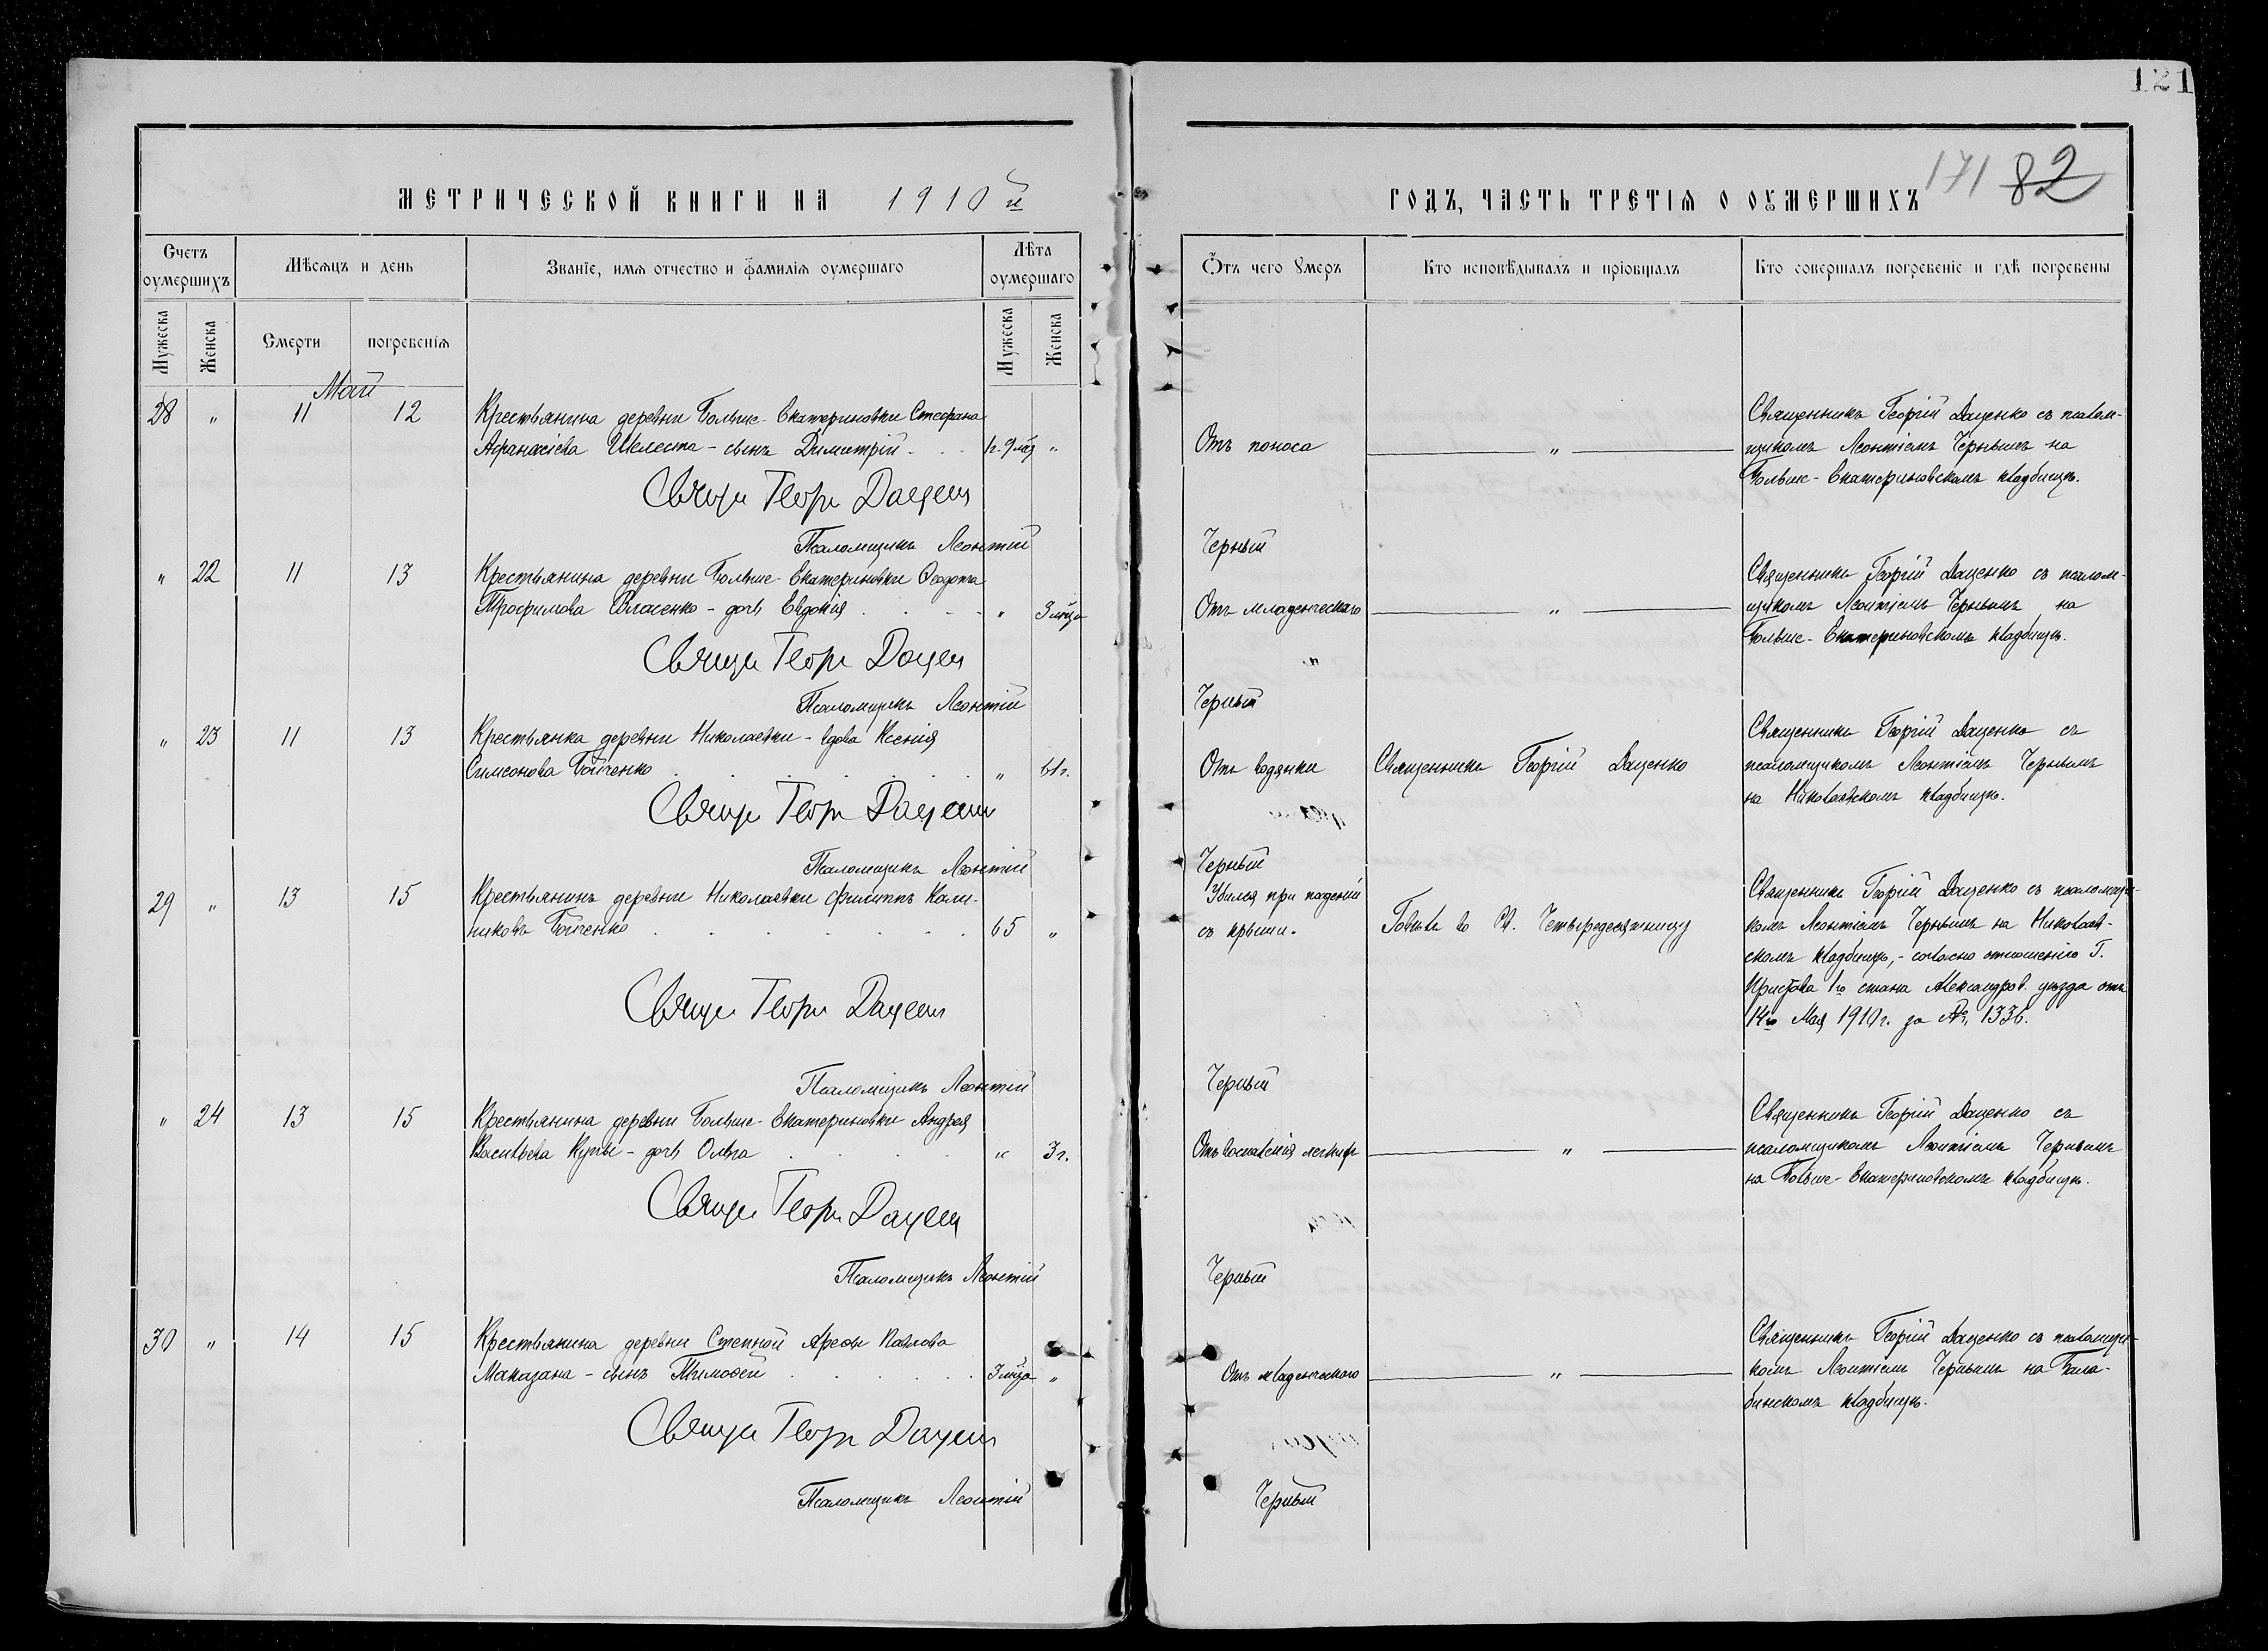 121
171 82
МЕТРИЧЕСКОЙ КНИГИ НА 1910й
ГОДЪ, ЧАСТЬ ТРЕТІѦ О ОУМЕРШИХЪ
Счетъ оумершихъ
Мѣсѧцъ и день
Званіе, имѧ отчество и фамилія оумершаго
Лѣта оумершаго
Ѿтъ чего Умеръ
Кто исповѣдывалъ и пріобщалъ
Кто совершалъ погребеніе и гдѣ погребены
Мужеска
Женска
Смерти
погребеніѧ
Мужеска
Женска
Май
28 " 11 12 Крестьянина деревни Больше-Екатериновки Стефана
Афанасіева Шелеста - сынъ Димитрій 1г. 9 мѣс "
Отъ поноса "
Священникъ Георгій Даценко съ псалом-
щикомъ Леонтіемъ Чернымъ на
Больше-Екатериновскомъ кладбищѣ.
Свящ Георг Даценк
Псаломщикъ Леонтій Черный
" 22 11 13 Крестьянина деревни Больше-Екатериновки Ѳедота
Трофимова Власенко - дочь Евдокія " 3 мѣся
Отъ младенческаго "
Священникъ Георгій Даценко съ псалом-
щикомъ Леонтіемъ Чернымъ на
Больше-Екатериновскомъ кладбищѣ.
Свящ Георг Даценк
Псаломщикъ Леонтій Черный
" 23 11 13 Крестьянка деревни Николаевки - вдова Ксенія
Симеонова Бойченко " 61г.
Отъ водянки Священникъ Георгій Даценко
Священникъ Георгій Даценко съ
псаломщикомъ Леонтіемъ Чернымъ
на Николаевскомъ кладбищѣ.
Свящ Георг Даценк
Псаломщикъ Леонтій Черный
29 " 13 15 Крестьянинъ деревни Николаевки Филиппъ Кали-
никовъ Бойченко 65 "
Убился при паденіи
съ крыши. Говѣлъ во Св. Четыредесятницу
Священникъ Георгій Даценко съ псаломщи-
комъ Леонтіемъ Чернымъ на Николаев-
скомъ кладбищѣ, - согласно отношенію Г.
Пристава 1го стана Александров. уѣзда отъ
14го Мая 1910г. за № 1336.
Свящ Георг Даценк
Псаломщикъ Леонтій Черный
" 24 13 15 Крестьянина деревни Больше-Екатериновки Андрея
Васильева Купы - дочь Ольга " 3г.
Отъ воспаленія легкихъ "
Священникъ Георгій Даценко съ
псаломщикомъ Леонтіемъ Чернымъ
на Больше-Екатериновскомъ кладбищѣ.
Свящ Георг Даценк
Псаломщикъ Леонтій Черный
30 " 14 15 Крестьянина деревни Степной Арефы Павлова
Маказана - сынъ Тимоѳей 3 мѣся "
Отъ младенческаго "
Священникъ Георгій Даценко съ псаломщи-
комъ Леонтіемъ Чернымъ на Бала-
бинскомъ кладбищѣ.
Свящ Георг Даценк
Псаломщикъ Леонтій Черный